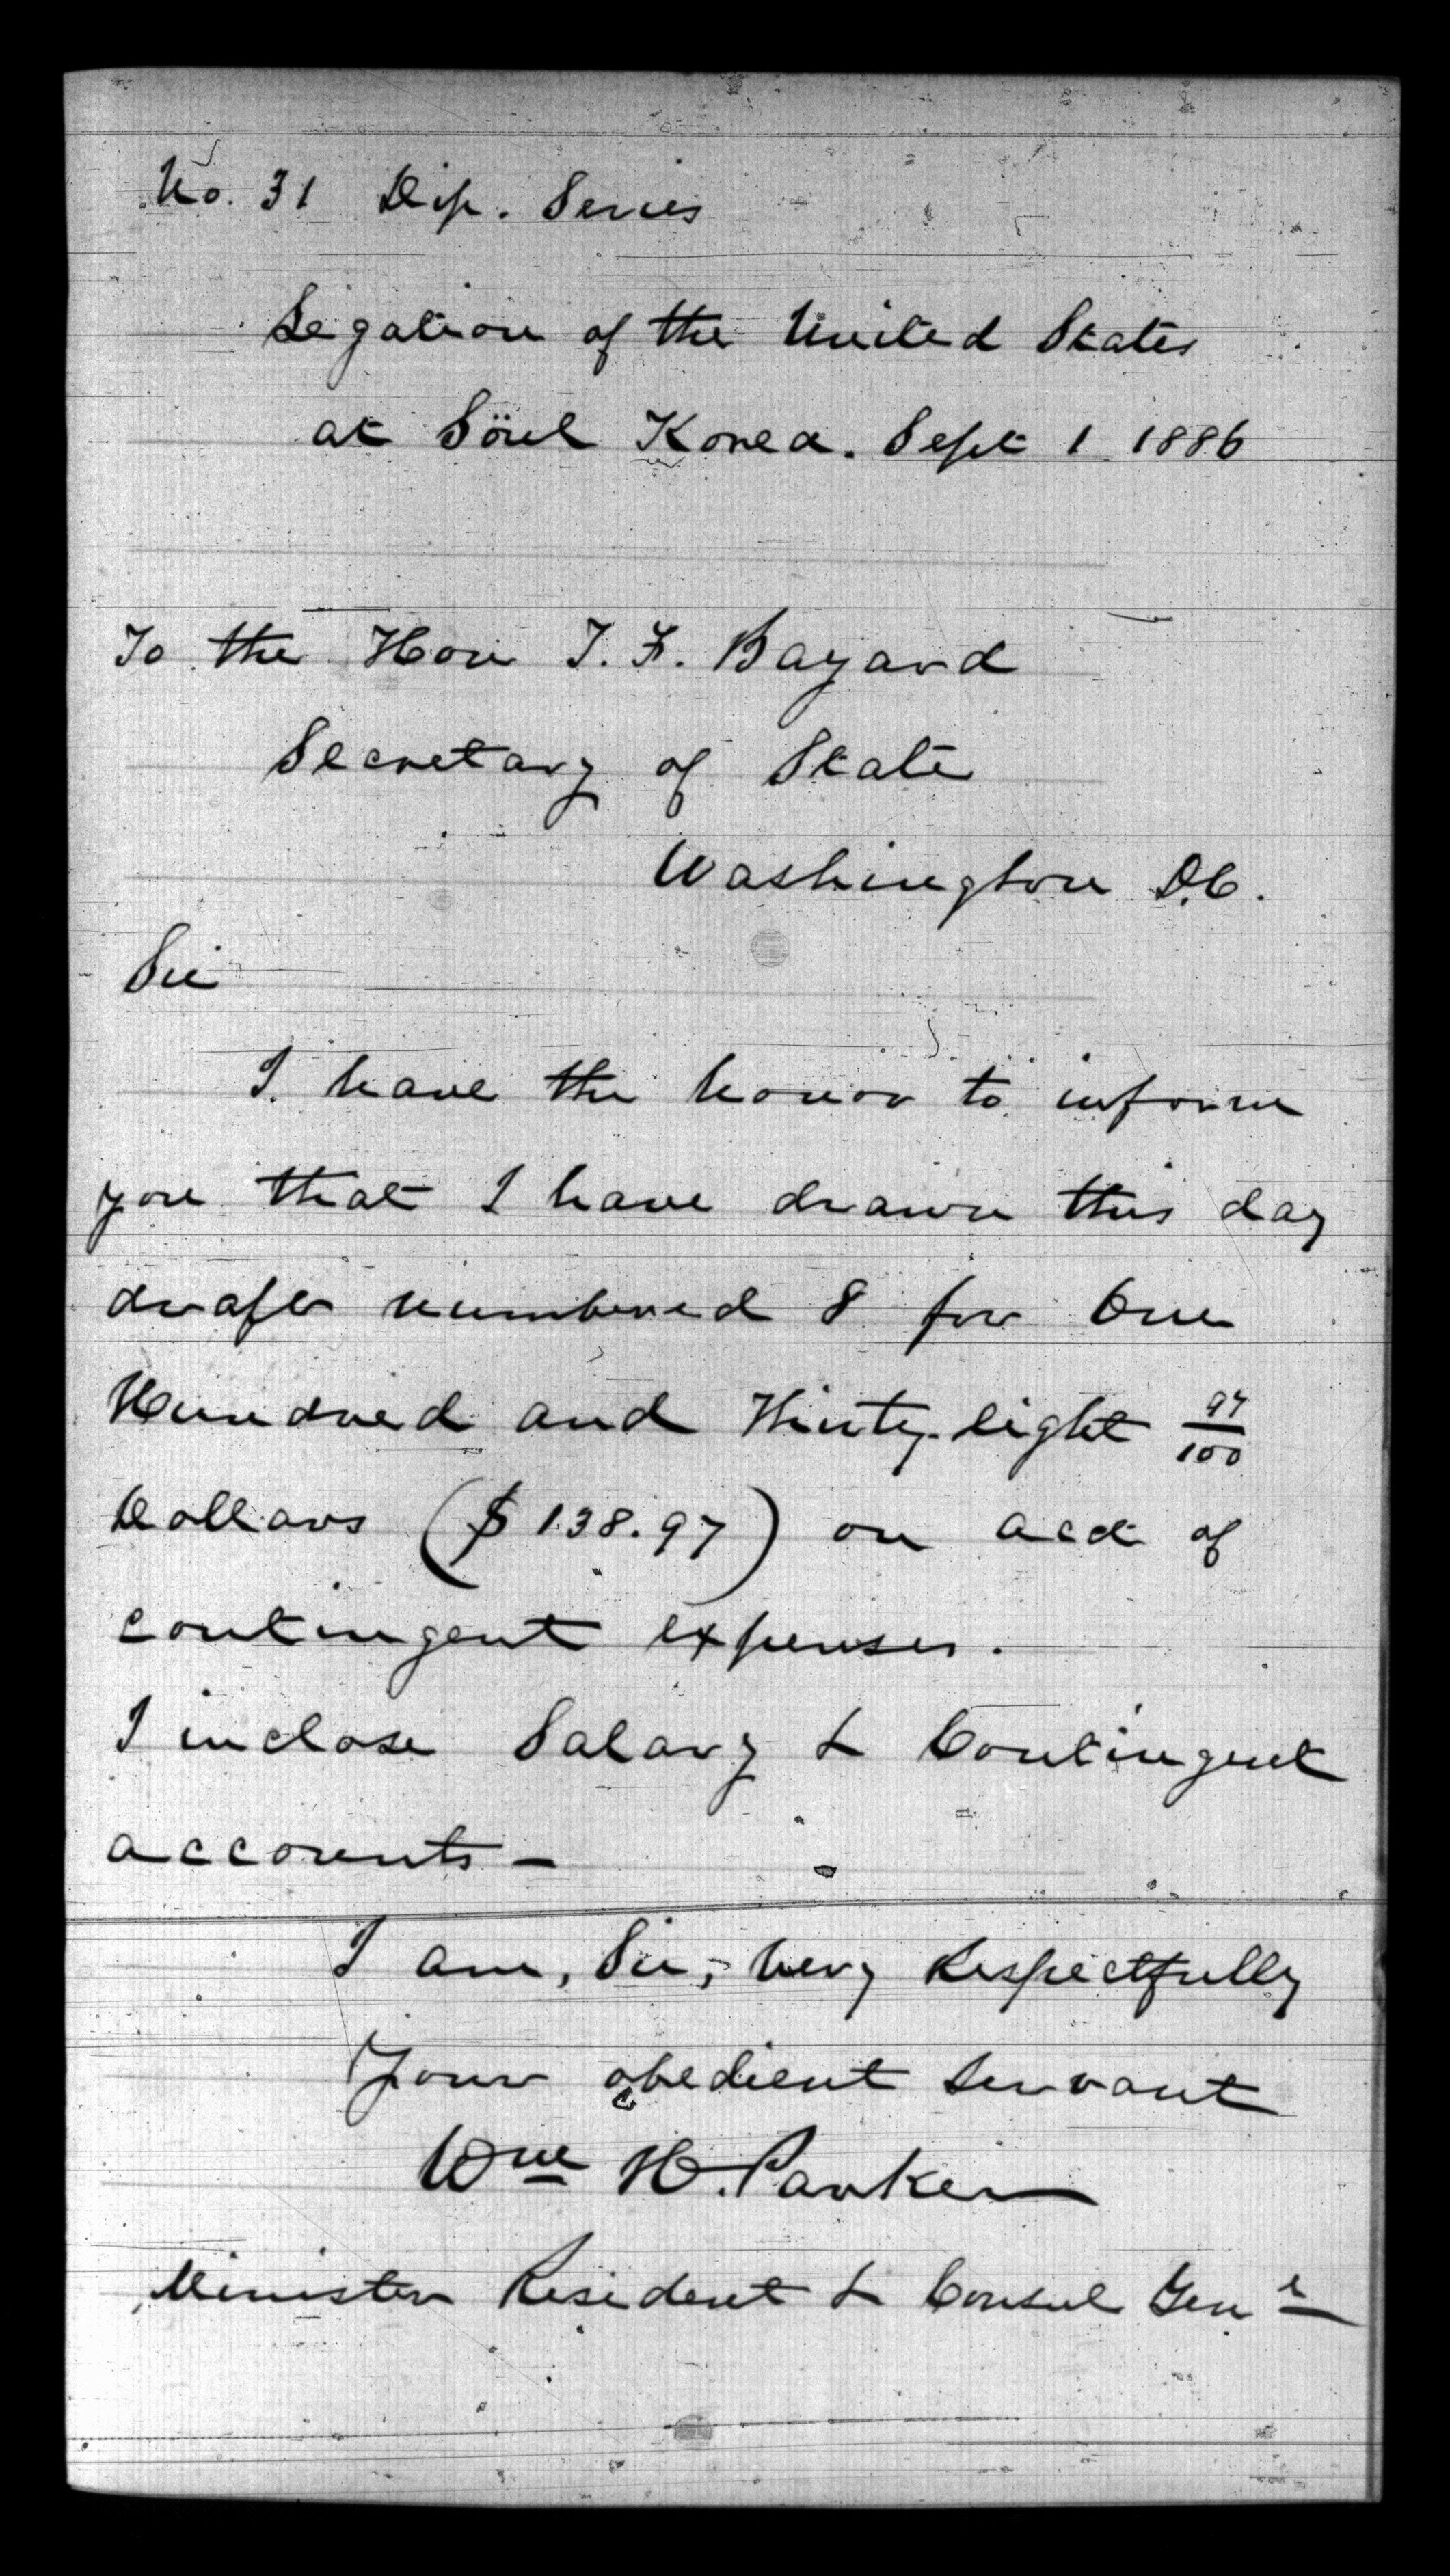 No. 31 Dip. Series
Legation of the United States
at Söul Korea. Sept 1 1886
To the Hon T. F. Bayard
Secretary of State
Washington D.C.
Sir
I have the honor to inform
you that I have drawn this day
draft numbered 8 for One
Hundred and Thirty-eight 97/100
Dollars ($138.97) on acct of
contingent expenses.
I inclose Salary & Contingent
accounts -
I am, Sir, very Respectfully
Your obedient servant
Wm H. Parker
Minister Resident & Consul Genl